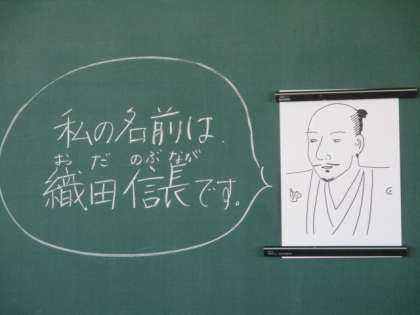 私の名前は、
おだ のぶなが
織田信長です。